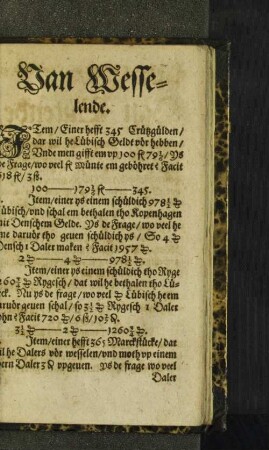 Van Wesse-
lende.
ITem / Einer hefft 345 Crützgülden /
dar wil he Lübisch Geldt vör hebben /
Vnde men gifft em vp 100 fl 79½ / Ys
de Frage / wo veel fl Münte em geböhret? Facit
618 fl / 3 ß.
100 —— 179½ fl —— 345.
Item / einer ys einem schüldich 978½
Lübisch / vnd schal em bethalen tho Kopenhagen
mit Denschem Gelde. Ys de Frage / wo veel he
eme daruör tho geuen schüldich ys / So 4
Densch 1 Daler maken? Facit 1957
2 —— 4 —— 978½
Item / einer ys einem schüldich tho Ryge
1260¾ Rygesch / dat wil he bethalen tho Lü-
beck. Nu ys de frage / wo veel Lübisch he em
daruör geuen schal / so 3½ Rygesch 1 Daler
dohn? Facit 720 / 6 ß / 10⅔
3½ —— 2 —— 1260¾
Item / einer hefft 365 Marckstücke / dar
wil he Dalers vör wesselen / vnd moth vp einem
dern Daler 3 vpgeuen. Ys de frage wo veel
Daler